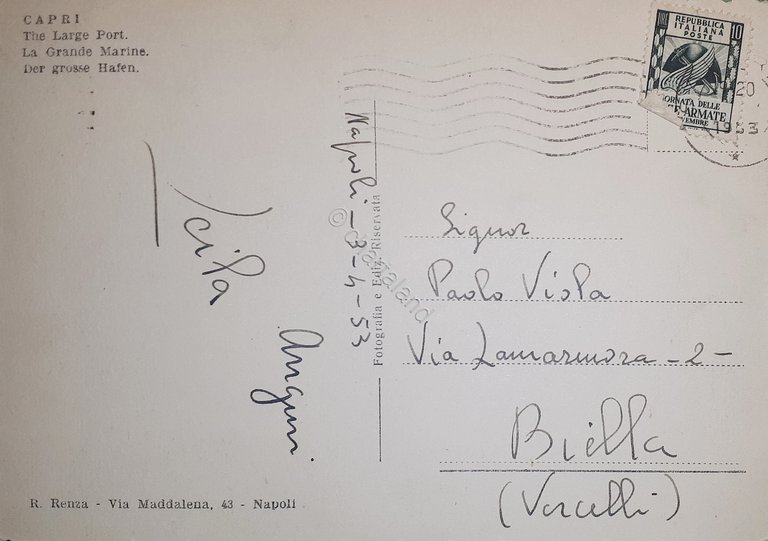 CAPRI
The Large Port.
La Grande Marine.
Der grosse Hafen.
REPUBBLICA
ITALIANA
POSTE
10
ORNATA DELLE
E ARMATE
VEMBRE
20
1953
Napoli - 3-4-53
Fotografia e Ediz. Riservata
Auguri
Signor
Paolo Viola
Via Lamarmora - 2 -
Biella
(Vercelli)
R. Renza - Via Maddalena, 43 - Napoli